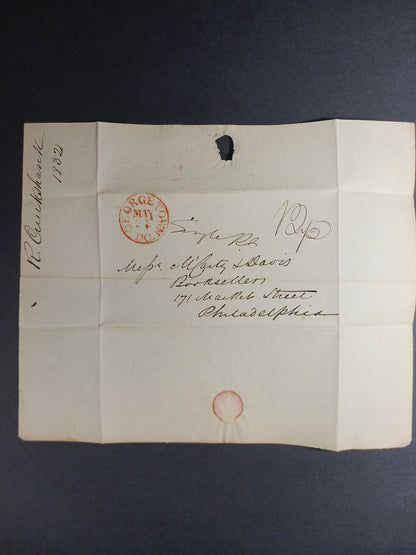 R. Cruikshank
1832
GEORGETOWN
MAY
24
D.C.
Single
Messrs. McCarty & Davis
Booksellers
171 Market Street
Philadelphia